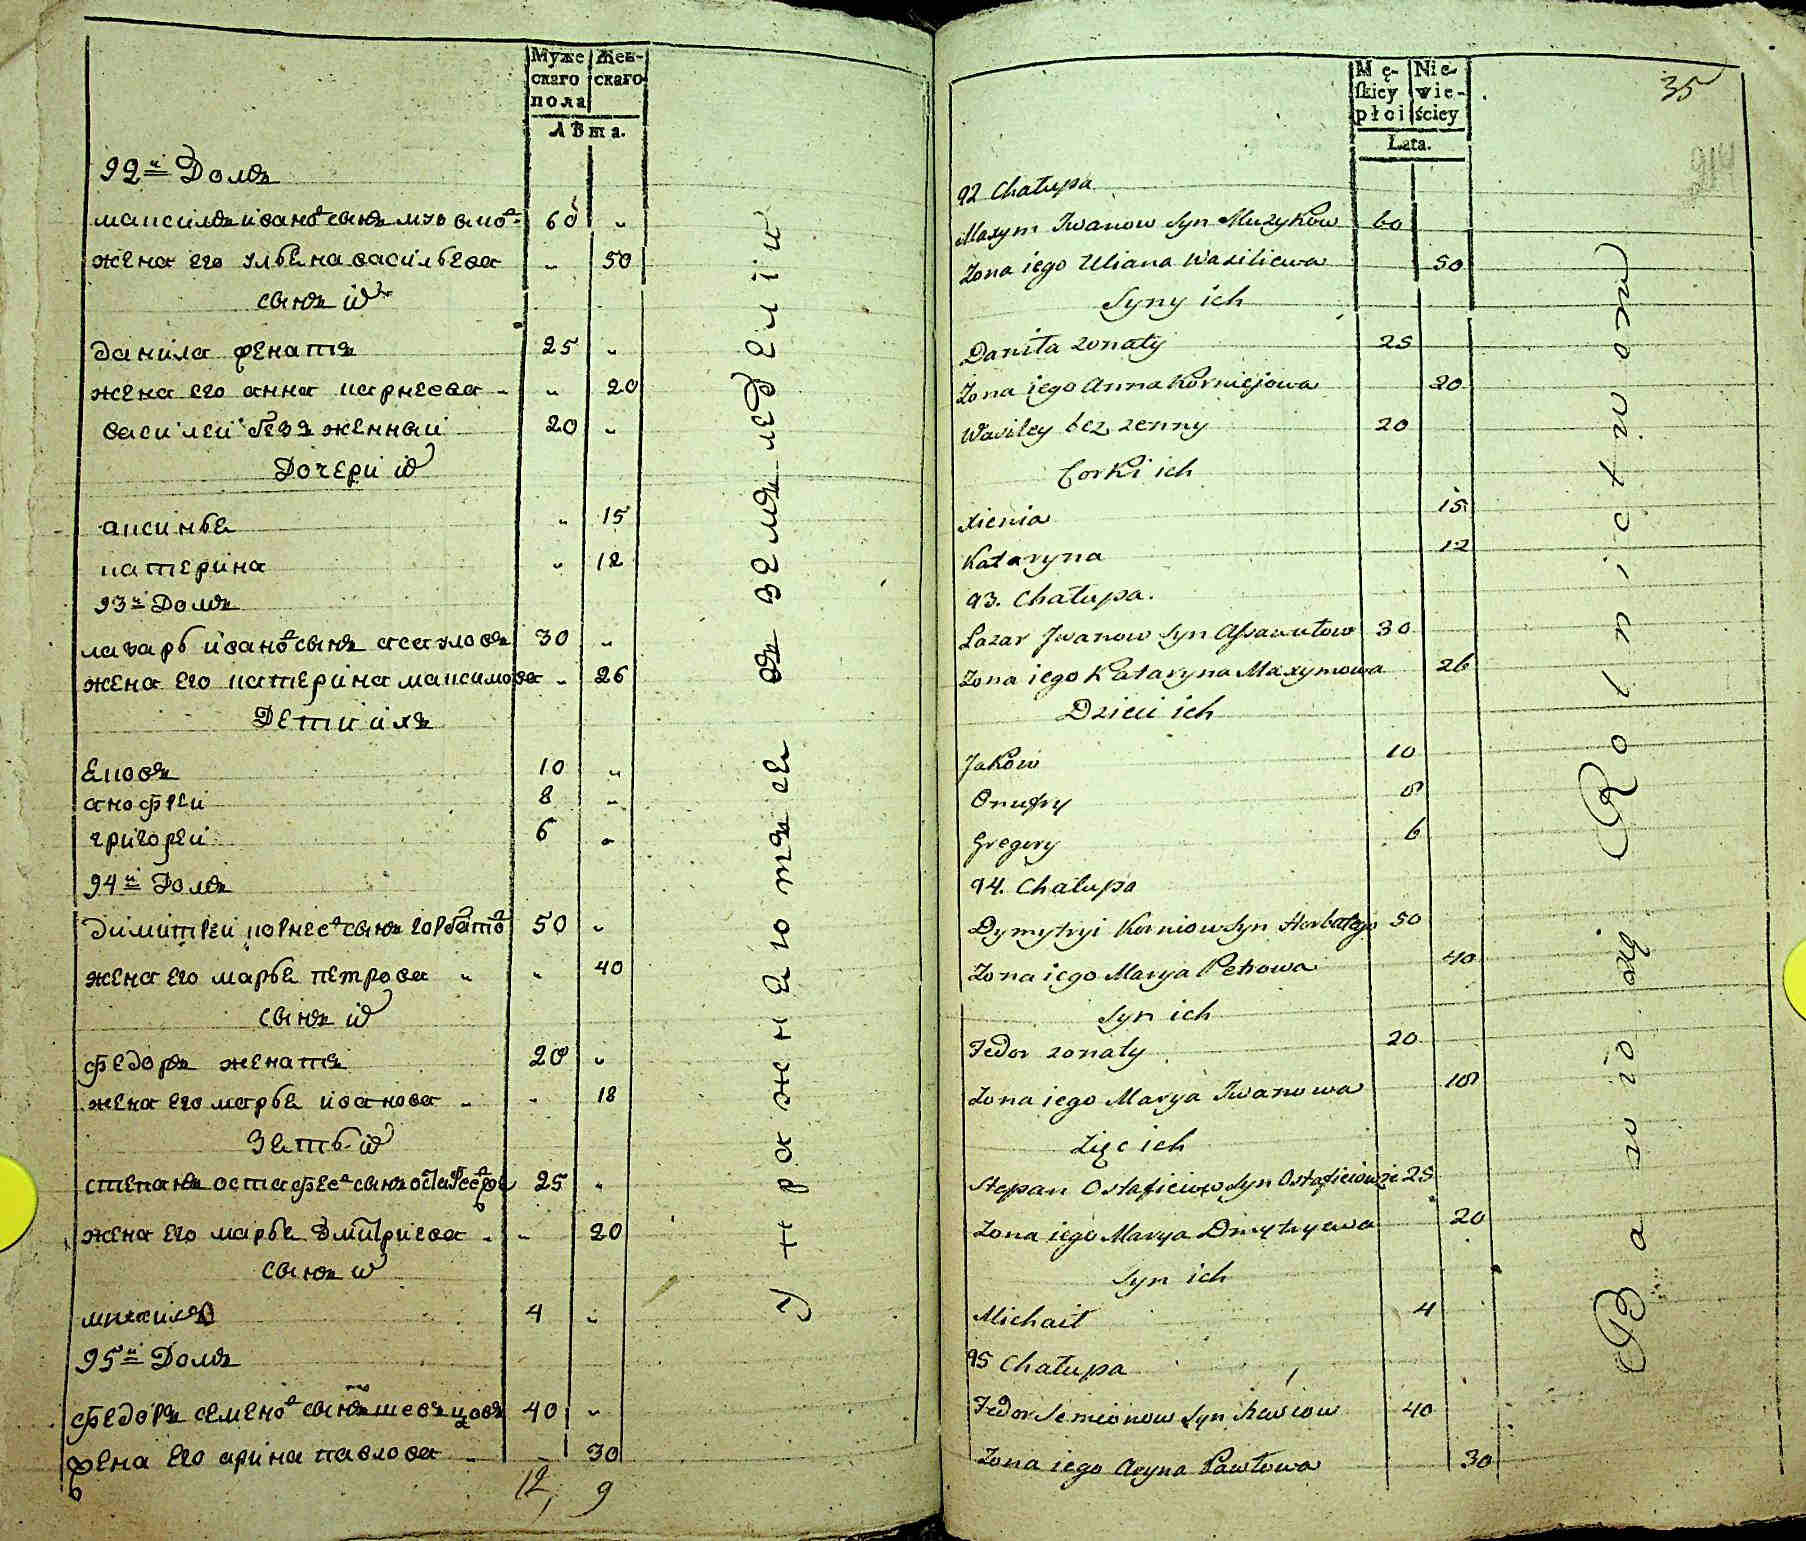 Муже
скаго
пола
Жен-
скаго
Лѣта.
92й Домъ
максимъ ивановъ сынъ музыковъ 60 „
жена его ульена васильева „ 50
сынъ их
данила женатъ 25 „
жена его анна карнеева „ 20
василеи безженный 20 „
Дочери их
аксинье „ 15
катерина „ 12
93й Домъ
лазарь ивановъ сынъ асауловъ 30 „
жена его катерина максимова „ 26
Дети ихъ
ековъ 10 „
анофреи 8 „
григореи 6 „
94й Домъ
димитреи корнеевъ сынъ горбатовъ 50 „
жена его марье петрова „ 40
сынъ их
федоръ женатъ 20 „
жена его марье иванова „ 18
Зеть их
степанъ остафеевъ сынъ 25 „
жена его марье дмитриева „ 20
сынъ их
михаилъ 4 „
95й Домъ
федоръ семеновъ сынъ шевцовъ 40 „
жена его арина павлова „ 30
12, 9
Упражнеютъсе въ земледелии
35
914
Mę-
skiey
płci
Nie-
wie-
ściey
Łata.
92 Chałupa
Maxym Iwanow Syn Muzyków 60
Żona iego Uliana Wasiliewa 50
Syny ich
Daniła żonaty 25
Żona iego Anna Korniejowa 20
Wasiley bez żenny 20
Corki ich
Xienia 15
Kataryna 12
93. Chałupa.
Łazar Jwanow Syn Assawułow 30
Żona iego Kataryna Maxymowa 26
Dzieci ich
Jaków 10
Onufry 8
Gregory 6
94. Chałupa
Dymytryi Korniow Syn Horbatego 50
Żona iego Marya Petrowa 40
Syn ich
Fedor żonaty 20
Żona iego Marya Iwanowa 18
Zięc ich
Stepan Ostafieiow Syn 25
Żona iego Marya Dmytryewa 20
Syn ich
Michaił 4
95 Chałupa
Fedor Semionow Syn 40
Żona iego Aryna Pawłowa 30
Bawią się Rolnictwem